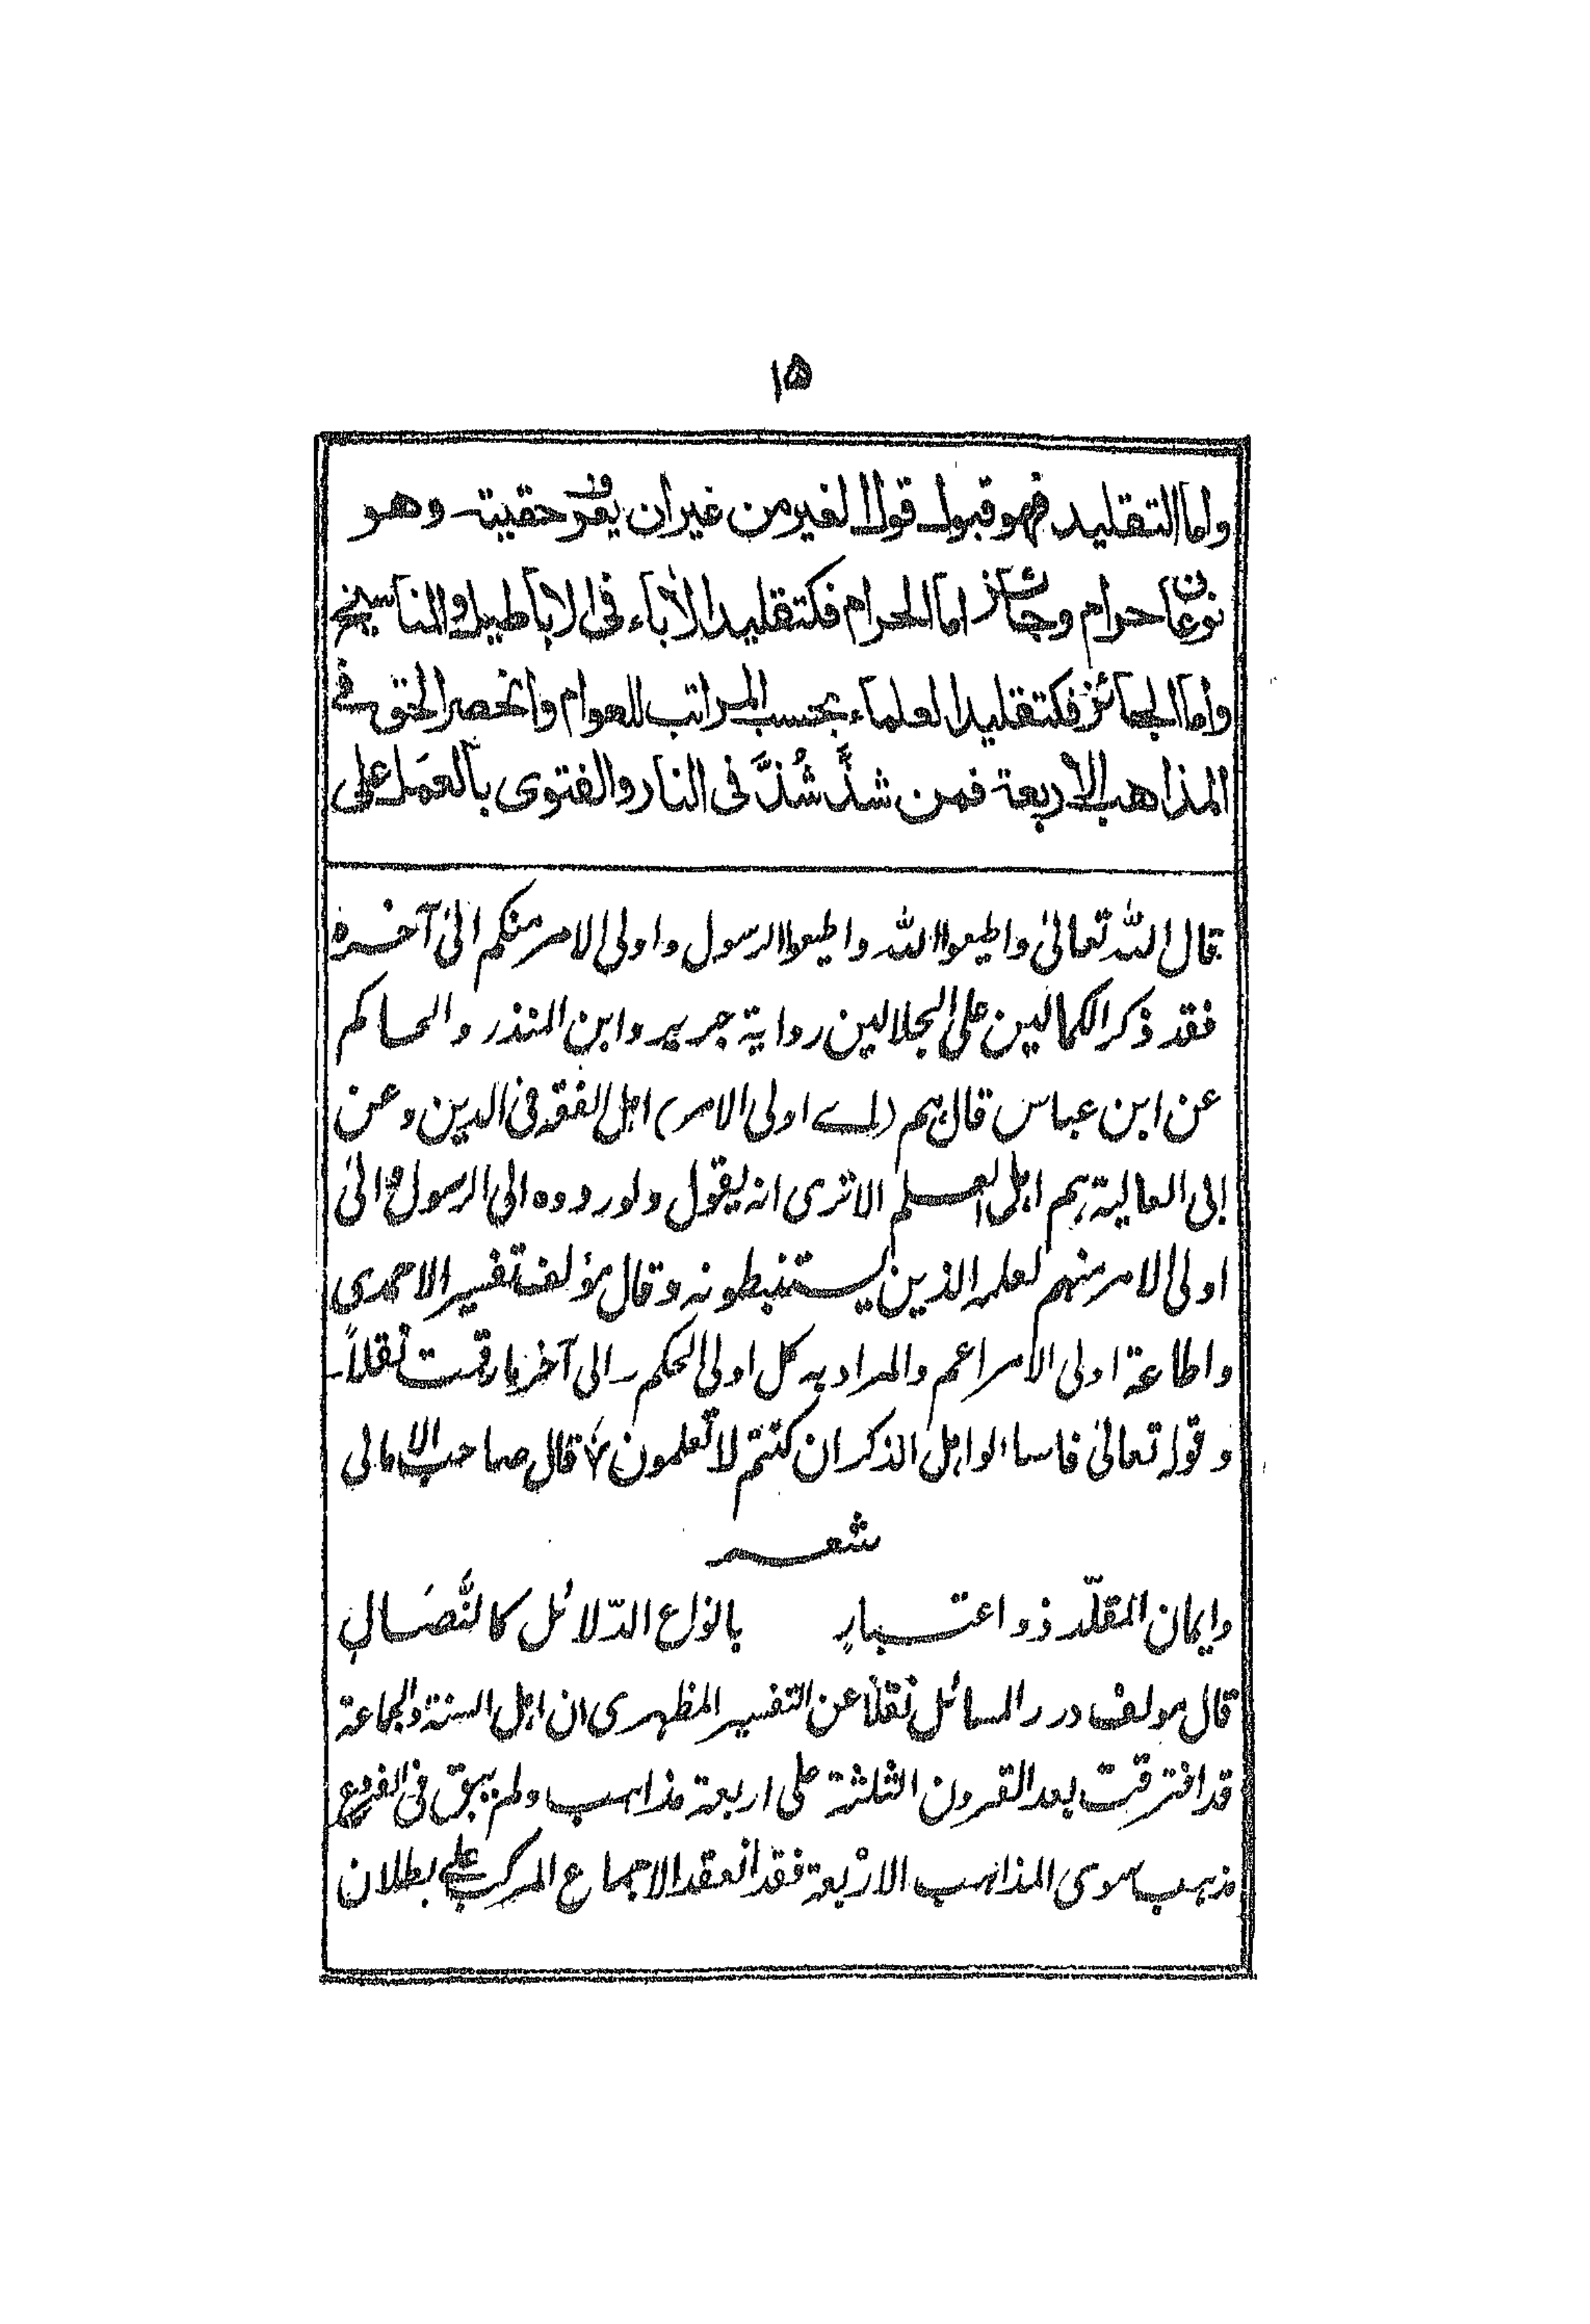 ۱۵
واما التقليد فهو قبول قول الغير من غير ان يعرف حقيته وهو
نوعان حرام وجائز اما الحرام فكتقليد الأباء فى الاباطيل والمناسيخ
واما الجائز فكتقليد العلماء بحسب المراتب للعوام وانحصر الحق فى
المذاهب الاربعة فمن شذَّ شُذَّ فى النار والفتوى بالعمَل على
قال اللہ تعالیٰ واطیعوا اللہ واطیعوا الرسول واولی الامر منکم الیٰ آخرہ
فقد ذکر الکمالین علی الجلالین روایۃ جریر وابن المنذر والحاکم
عن ابن عباس قال ہم (اے اولی الامر) اہل الفقہ فی الدین وعن
ابی العالیۃ ہم اہل العلم الا تریٰ انہ یقول ولو ردوہ الی الرسول والیٰ
اولی الامر منہم لعلمہ الذین یستنبطونہ وقال مؤلف تفسیر الاحمدی
واطاعۃ اولی الامر اعم والمراد بہ کل اولی الحکم۔ الی آخر ما رقمت نقلاً۔
وقولہ تعالیٰ فاسالوا اہل الذکر ان کنتم لا تعلمون ۷ قال صاحب الامالی
شعر
وایمان المقلّد ذو اعتبارٍ بانواع الدّلائل کالنّصَالِ
قال مولف درر المسائل نقلاً عن التفسیر المظہری ان اہل السنۃ والجماعۃ
قد افترقت بعد القرون الثلثۃ علی اربعۃ مذاہب ولم یبق فی الفروع
مذہب سوی المذاہب الاربعۃ فقد انعقد الاجماع المرکب علی بطلان